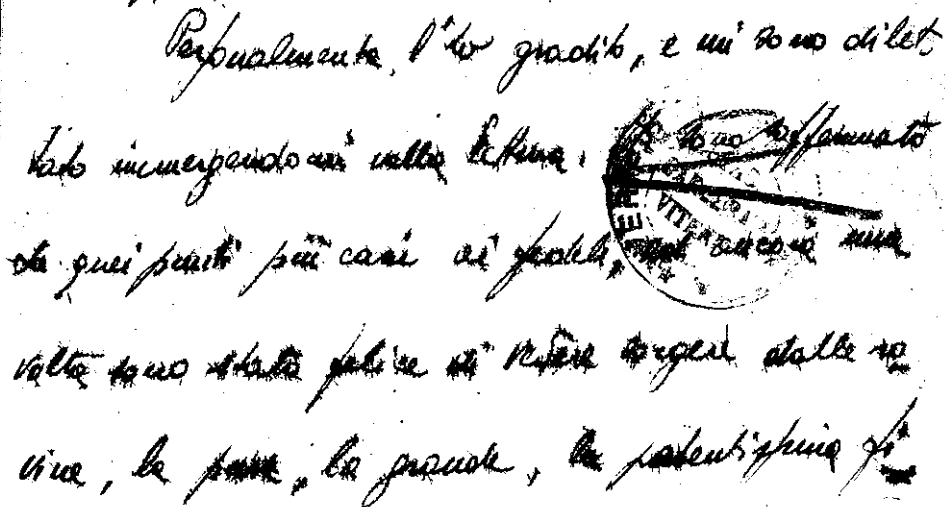 Personalmente, l'ho gradito, e mi sono dilet
tato immergendomi nella lettura. Mi sono soffermato
da quei punti più cari ai fedeli, ed ancora una
volta sono stato felice di vedere sorgere dalle ro
vine, la pura, la grande, la potentissima fi
VITER